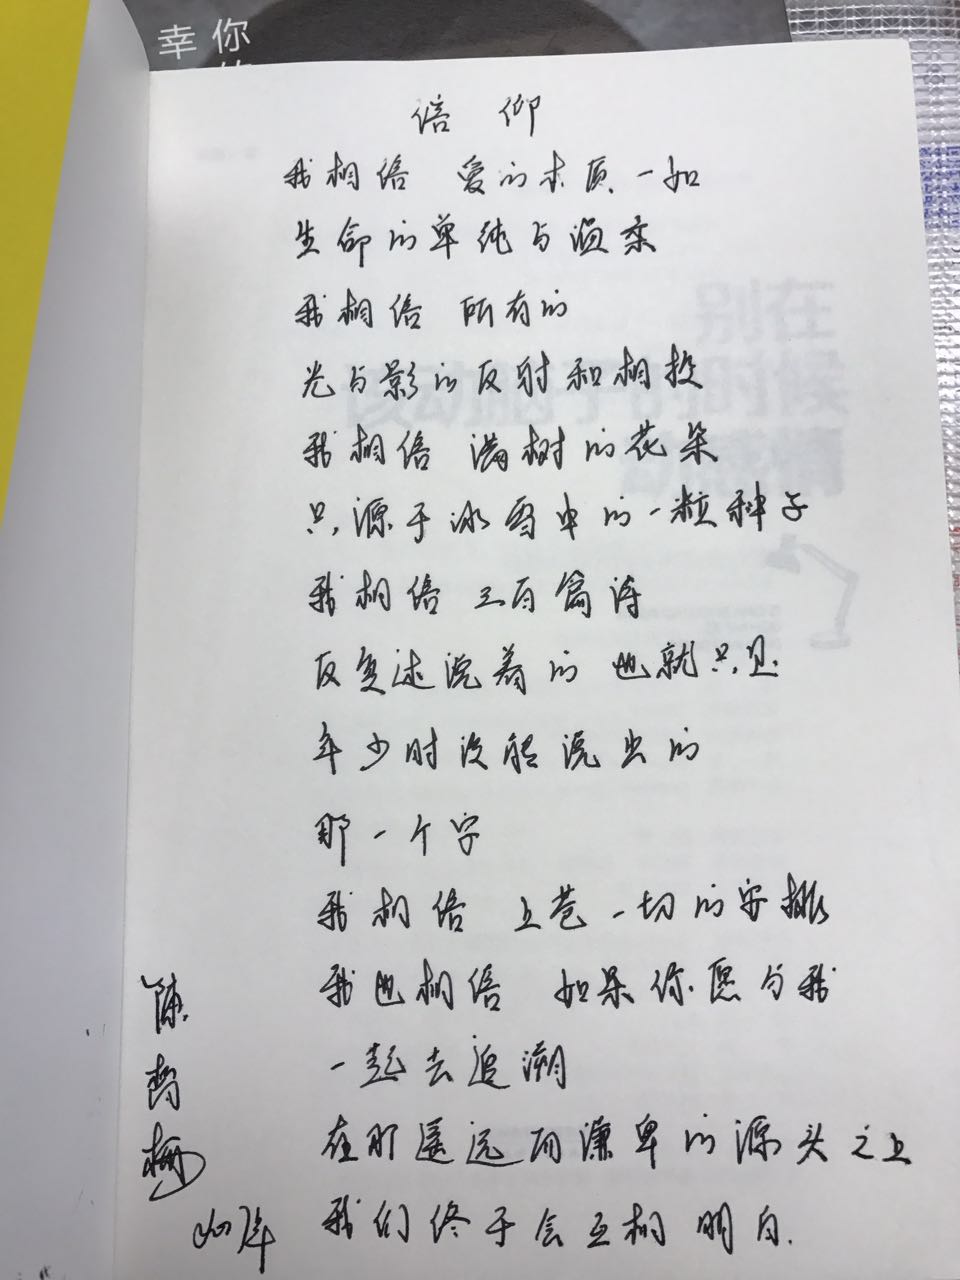 幸 你
信 仰
我相信 爱的本质一如
生命的单纯与温柔
我相信 所有的
光与影的反射和相投
我相信 满树的花朵
只源于冰雪中的一粒种子
我相信 三百篇诗
反复述说着的 也就只是
年少时没能说出的
那一个字
我相信 上苍一切的安排
我也相信 如果你愿与我
一起去追溯
在那遥远而谦卑的源头之上
我们终于会互相明白.
别在
该动脑子的时候
动感情